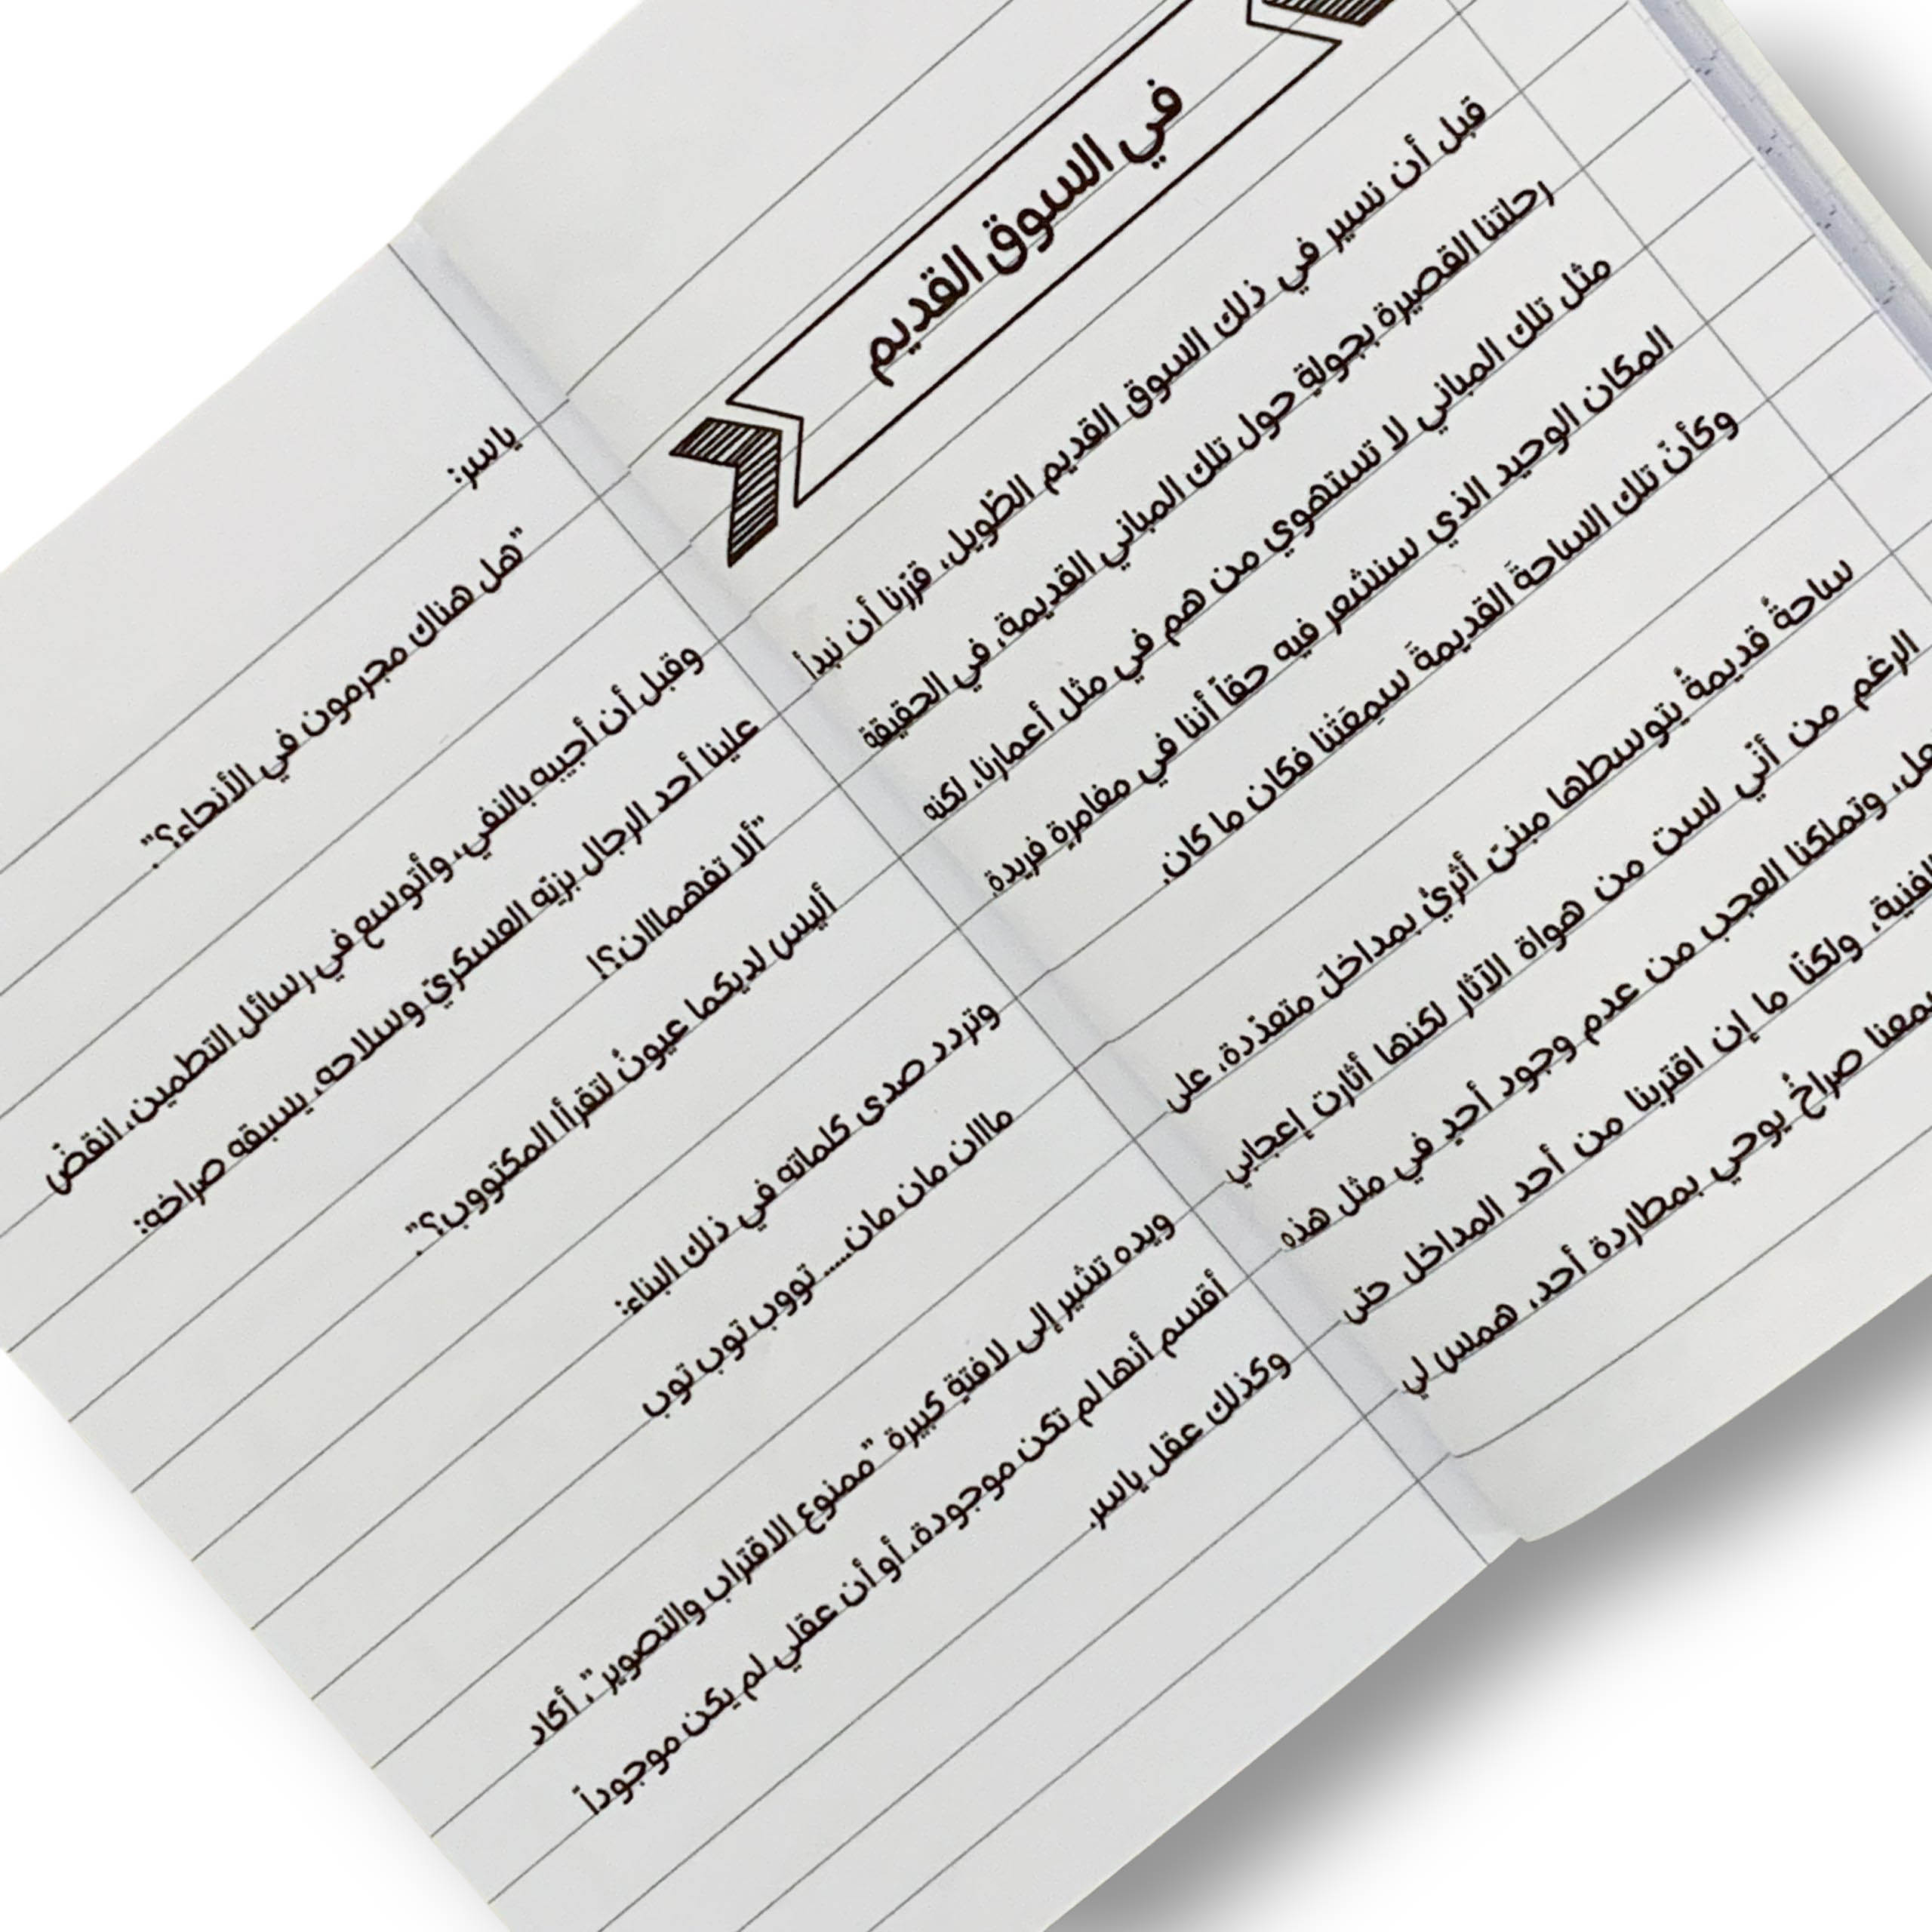 في السوق القديم
قبل أن نسير في ذلك السوق القديم الطّويل، قرّرنا أن نبدأ
رحلتنا القصيرة بجولةٍ حول تلك المباني القديمة، في الحقيقة
مثل تلك المباني لا تستهوي من هم في مثل أعمارنا، لكنه
المكان الوحيد الذي سنشعر فيه حقاً أننا في مغامرة فريدة.
وكأنّ تلك الساحةَ القديمةَ سمِعَتْنا فكان ما كان.
ساحةٌ قديمةٌ يتوسطها مبنىً أثريٌّ بمداخلَ متعدّدة، على
الرغم من أنّي لست من هواة الآثار لكنها أثارت إعجابي
وتملكنا العجب من عدم وجود أحدٍ في مثل هذه
الفنية، ولكنّا ما إن اقتربنا من أحد المداخل حتى
صراخٌ يوحي بمطاردة أحد، همس لي
ياسر:
"هل هناك مجرمون في الأنحاء؟".
وقبل أن أجيبه بالنفي، وأتوسع في رسائل التطمين، انقضّ
علينا أحد الرجال بزيّه العسكريّ وسلاحه، يسبقه صراخه:
"ألا تفهمااان؟!
أليس لديكما عيونٌ لتقرأا المكتووب؟".
وتردد صدى كلماته في ذلك البناء:
مااان مان مان..... تووب توب توب
ويده تشير إلى لافتةٍ كبيرة "ممنوع الاقتراب والتصوير"، أكاد
أقسم أنها لم تكن موجودة، أو أن عقلي لم يكن موجوداً
وكذلك عقل ياسر.